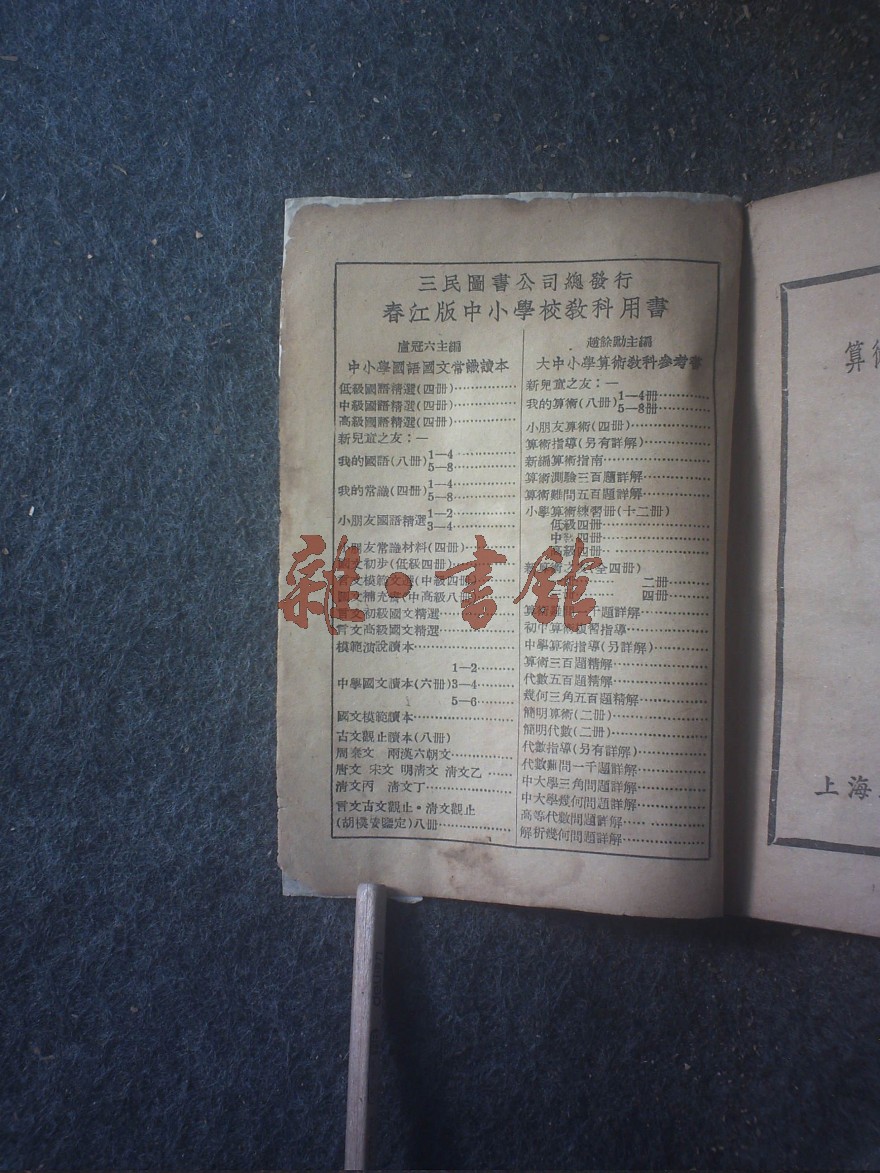 三民圖書公司總發行
春江版中小學校教科用書
盧冠六主編
中小學國語國文常識讀本
低級國語精選(四冊)…………
中級國語精選(四冊)…………
高級國語精選(四冊)…………
新兒童之友：—
我的國語(八冊) 1—4…………
5—8…………
我的常識(四冊) 1—4…………
5—8…………
小朋友國語精選 1—2…………
3—4…………
小朋友常識材料(四冊)…………
國文初步(低級四冊)…………
言文模範文選(中級四冊)…………
國文補充書(中高級八冊)…………
言文初級國文精選…………
言文高級國文精選…………
模範演說讀本…………
1—2…………
中學國文讀本(六冊)3—4…………
5—6…………
國文模範讀本…………
古文觀止讀本(八冊)
周秦文 兩漢六朝文…………
唐文 宋文 明清文 清文乙…………
清文丙 清文丁…………
言文古文觀止·清文觀止
(胡樸安鑒定)八冊…………
趙餘勛主編
大中小學算術教科參考書
新兒童之友：—
我的算術(八冊) 1—4冊…………
5—8冊…………
小朋友算術(四冊)…………
算術指導(另有詳解)…………
新編算術指南…………
算術測驗三百題詳解…………
算術難問五百題詳解…………
小學算術練習冊(十二冊)
低級四冊…………
中級四冊…………
高級四冊…………
新算術之友(全四冊)
二冊…………
四冊…………
算術難問一千題詳解…………
初中算術複習指導…………
中學算術指導(另詳解)…………
算術三百題精解…………
代數五百題精解…………
幾何三角五百題精解…………
簡明算術(二冊)…………
簡明代數(二冊)…………
代數指導(另有詳解)…………
代數難問一千題詳解…………
中大學三角問題詳解…………
中大學幾何問題詳解…………
高等代數問題詳解…………
解析幾何問題詳解…………
雜·書館
算術
上海